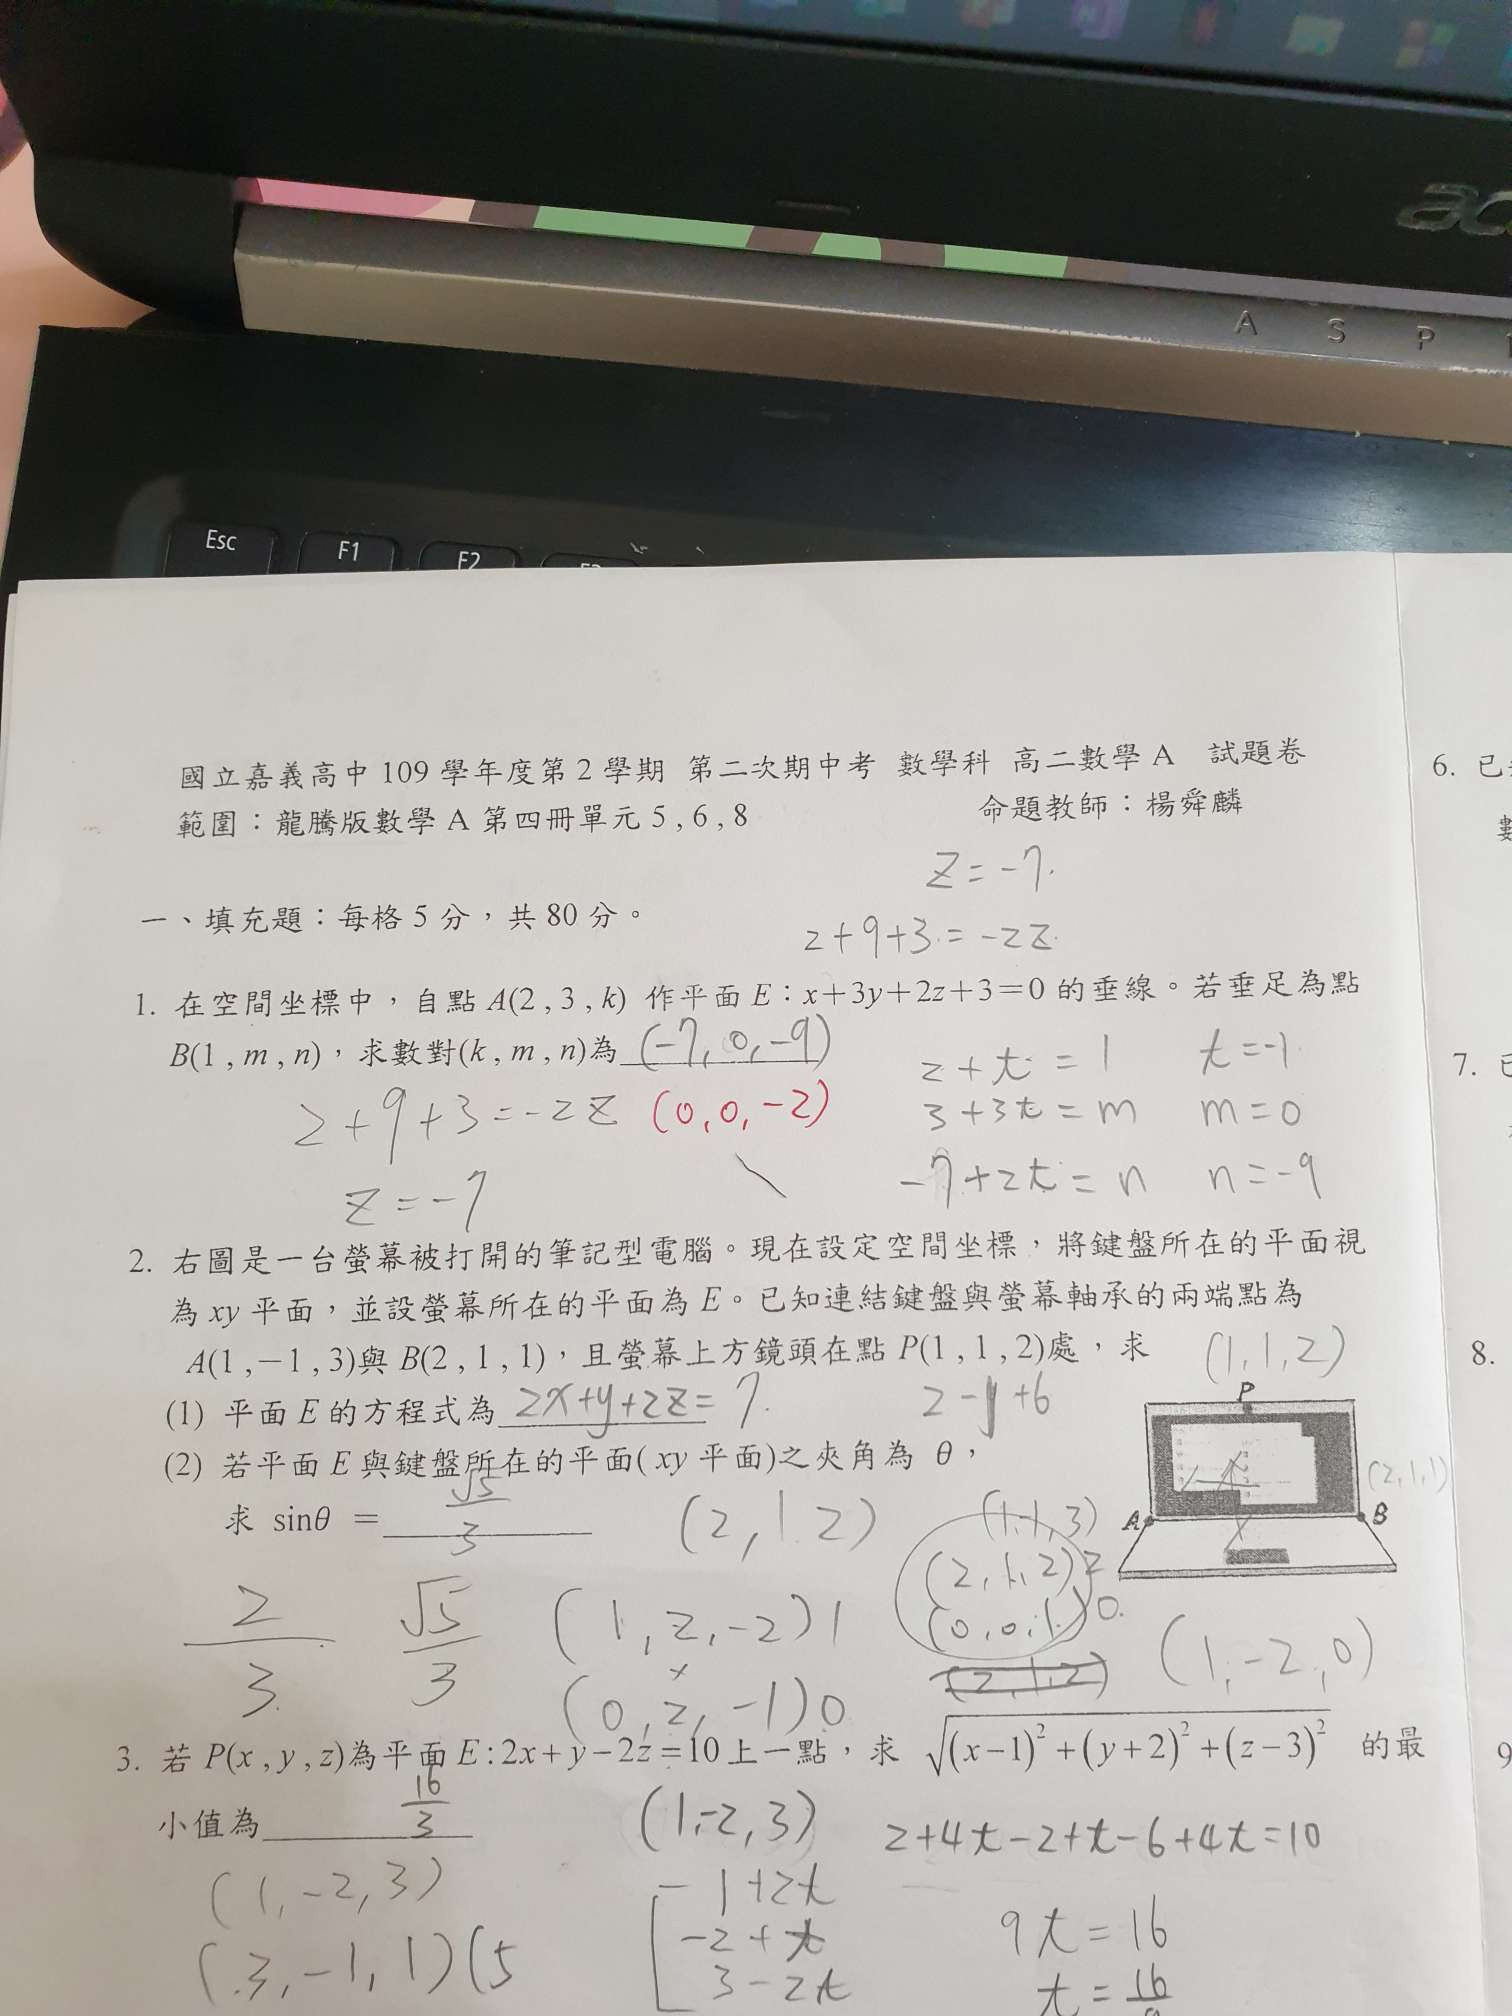 A S P
Esc F1 F2
國立嘉義高中 109 學年度第 2 學期 第二次期中考 數學科 高二數學 A 試題卷
範圍：龍騰版數學 A 第四冊單元 5 , 6 , 8 命題教師：楊舜麟
z = -7.
一、填充題：每格 5 分，共 80 分。
2+9+3 = -2z
1. 在空間坐標中，自點 A(2 , 3 , k) 作平面 E：x+3y+2z+3=0 的垂線。若垂足為點
B(1 , m , n)，求數對(k , m , n)為 (-7, 0, -9)
2+t = 1 t = -1
2+9+3 = -2z (0, 0, -2) 3+3t = m m = 0
z = -7 -7+2t = n n = -9
2. 右圖是一台螢幕被打開的筆記型電腦。現在設定空間坐標，將鍵盤所在的平面視
為 xy 平面，並設螢幕所在的平面為 E。已知連結鍵盤與螢幕軸承的兩端點為
A(1 , －1 , 3)與 B(2 , 1 , 1)，且螢幕上方鏡頭在點 P(1 , 1 , 2)處，求 (1,1,2)
(1) 平面 E 的方程式為 2x+y+2z = 7. 2-y+6 P
(2) 若平面 E 與鍵盤所在的平面( xy 平面)之夾角為 θ， (2,1,1)
求 sinθ ＝ √5/3 (2, 1. 2) (1,-1,3) A B
(2, 1, 2) 2
2/3 √5/3 (1, 2, -2) 1 (0, 0, 1) 0. (1, -2, 0)
(0, 2, -1) 0 (2, 1, 2)
3. 若 P(x , y , z)為平面 E : 2x+y−2z=10 上一點，求 √(x−1)²+(y+2)²+(z−3)² 的最
小值為 16/3 (1,-2,3) 2+4t-2+t-6+4t=10
(1, -2, 3) 1+2t
-2+t 9t = 16
(3, -1, 1) (5 3-2t t = 16
6. 已
數
7.
8.
9